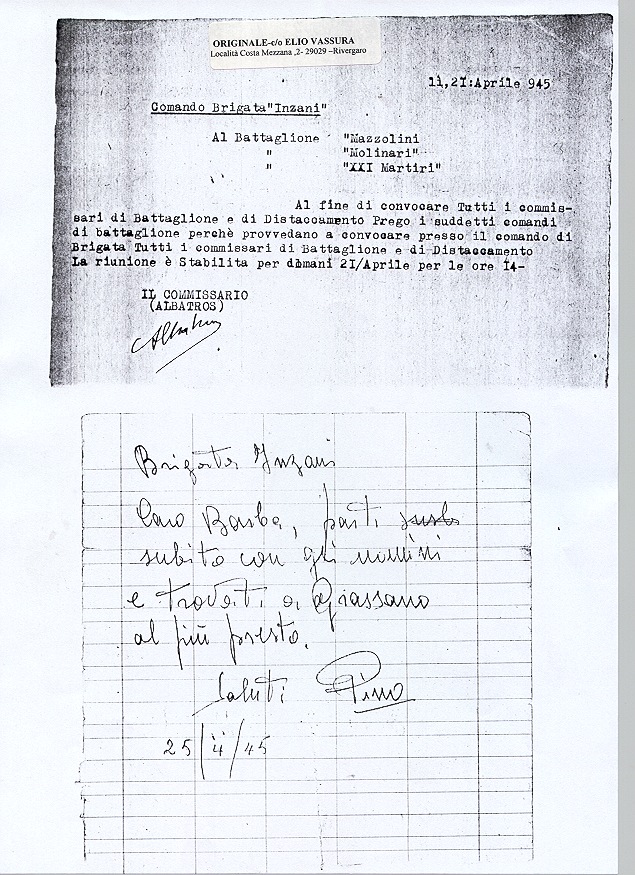 ORIGINALE-c/o ELIO VASSURA
Località Costa Mezzana ,2- 29029 –Rivergaro
lì,2I:Aprile 945
Comando Brigata"Inzani"
Al Battaglione "Mazzolini
" "Molinari"
" "XXI Martiri"
Al fine di convocare Tutti i commis-
sari di Battaglione e di Distaccamento Prego i suddetti comandi
di battaglione perchè provvedano a convocare presso il comando di
Brigata Tutti i commissari di Battaglione e di Distaccamento
La riunione è Stabilita per domani 2I/Aprile per le ore I4-
IL COMMISSARIO
(ALBATROS)
Albatros
Brigata Inzani
Caro Barba, parti
subito con gli uomini
e trovati a Grassano
al più presto.
Saluti Pino
25/4/45